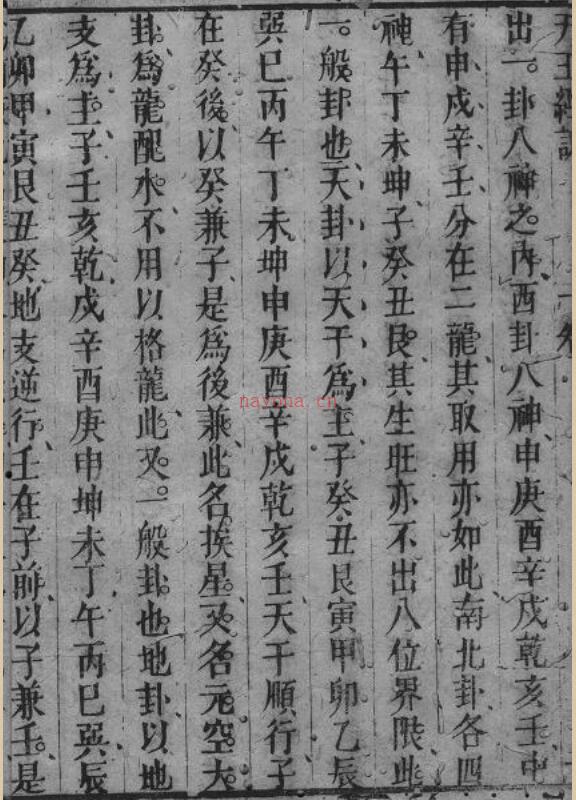 天玉經 一卷
出一。卦八神之內、西卦八神、申庚酉辛戌乾亥壬、中
有申戌辛壬分在二龍、其取用亦如此、南北卦各四
神、午丁未坤、子癸丑艮、其生旺亦不出八位界限、此
一。般卦也、天卦以天干為主、子癸丑艮寅甲卯乙辰
巽巳丙午丁未坤申庚酉辛戌乾亥壬天干順行、子
在癸後。以癸兼子、是為後兼、此名挨星。又名元空大
卦。為龍配水、不用以格龍、此又一般卦也。地卦以地
支為主。子壬亥乾戌辛酉庚申坤未丁午丙巳巽辰
乙卯甲寅艮丑癸地支逆行。壬在子前、以子兼壬、是
nayona.cn